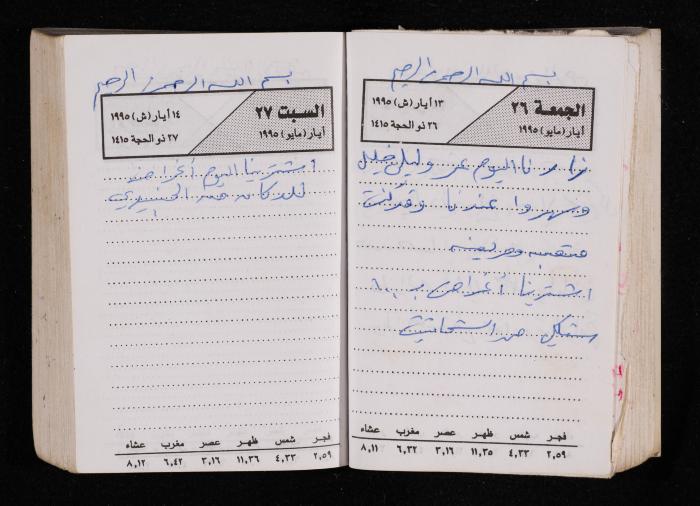 بسم الله الرحمن الرحيم
الجمعة ٢٦
١٣ أيار (ش) ١٩٩٥
أيار (مايو) ١٩٩٥
٢٦ ذو الحجة ١٤١٥
زارنا اليوم عمر وليلى خليل
وسهروا عندنا وكانت
متعبه ومريضه
اشترينا أغراض ب ٨٠٠
شيكل من
فجر شمس ظهر عصر مغرب عشاء
٢,٥٩ ٤,٣٣ ١١,٣٥ ٣,١٦ ٦,٣٢ ٨,١١
بسم الله الرحمن الرحيم
السبت ٢٧
١٤ أيار (ش) ١٩٩٥
أيار (مايو) ١٩٩٥
٢٧ ذو الحجة ١٤١٥
اشترينا اليوم أغراض
للدكان من
فجر شمس ظهر عصر مغرب عشاء
٢,٥٩ ٤,٣٣ ١١,٣٦ ٣,١٦ ٦,٤٢ ٨,١٢